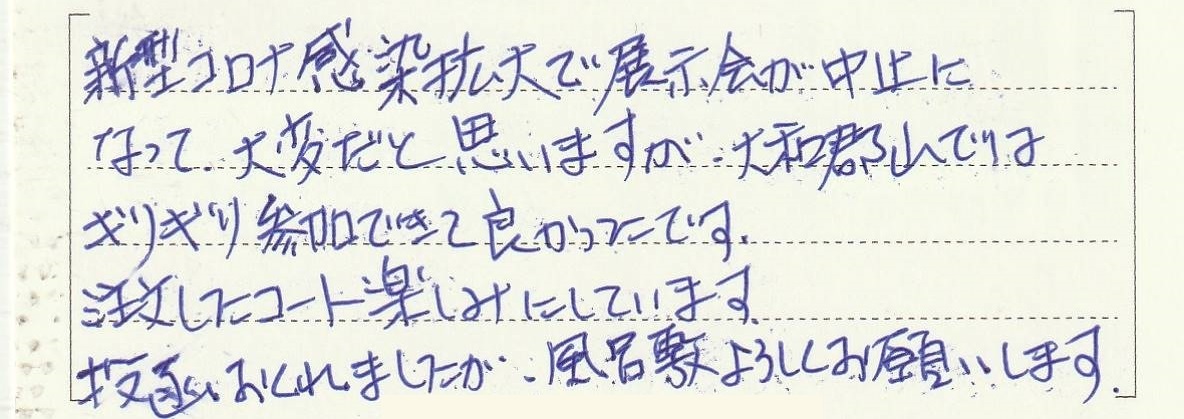 新型コロナ感染拡大で展示会が中止に
なって、大変だと思いますが、大和郡山では
ギリギリ参加できて良かったです。
注文したコート楽しみにしています。
おくれましたが、風呂敷よろしくお願いします。